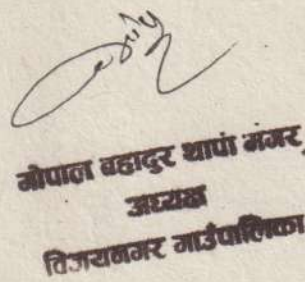 गोपाल बहादुर थापा मगर
अध्यक्ष
विजयनगर गाउँपालिका